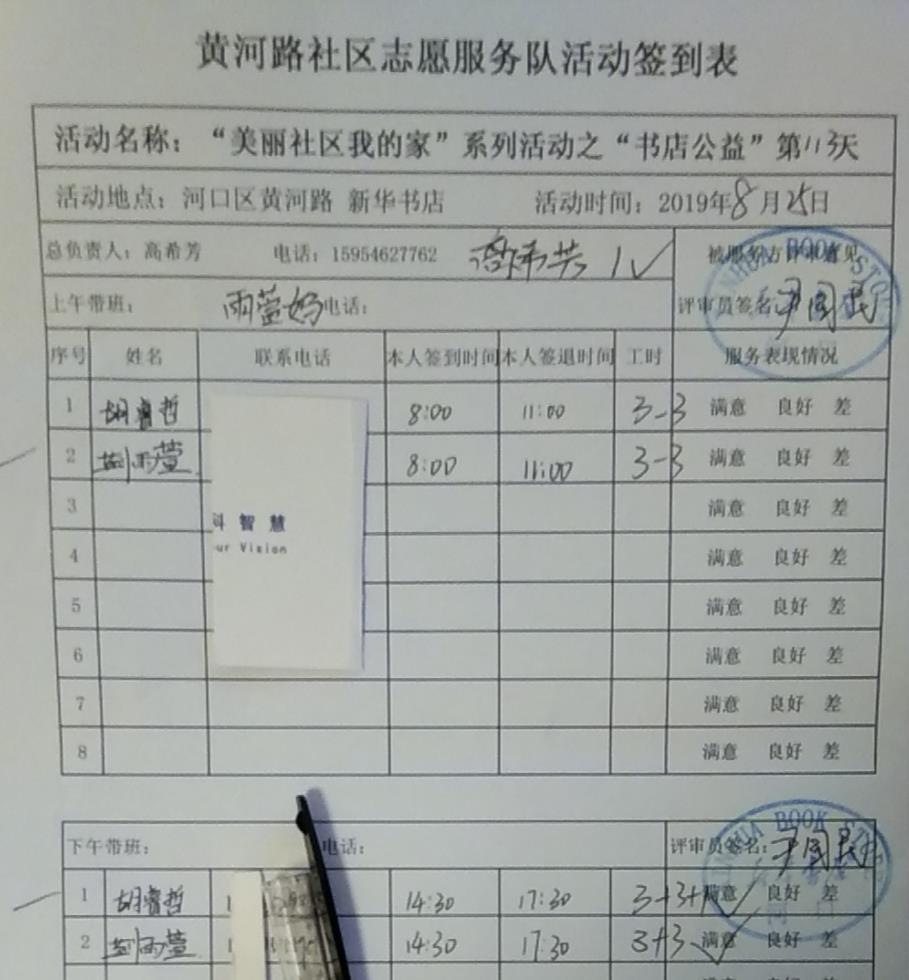 黄河路社区志愿服务队活动签到表
活动名称：“美丽社区我的家”系列活动之“书店公益”第113天
活动地点：河口区黄河路 新华书店 活动时间：2019年8月25日
总负责人：高希芳 电话：15954627762 1√ 被服务方评审意见
上午带班： 雨萱妈 电话： 评审员签名：尹国民
序号 姓名 联系电话 本人签到时间 本人签退时间 工时 服务表现情况
1 胡睿哲 8:00 11:00 3-3 满意 良好 差
2 刘雨萱 8:00 11:00 3-3 满意 良好 差
3 满意 良好 差
科智慧
4 满意 良好 差
ur Vision
5 满意 良好 差
6 满意 良好 差
7 满意 良好 差
8 满意 良好 差
下午带班： 电话： 评审员签名：尹国民
BOOK STO
1 胡睿哲 14:30 17:30 3+3+ 满意 良好 差
2 刘雨萱 14:30 17:30 3+3 满意 良好 差